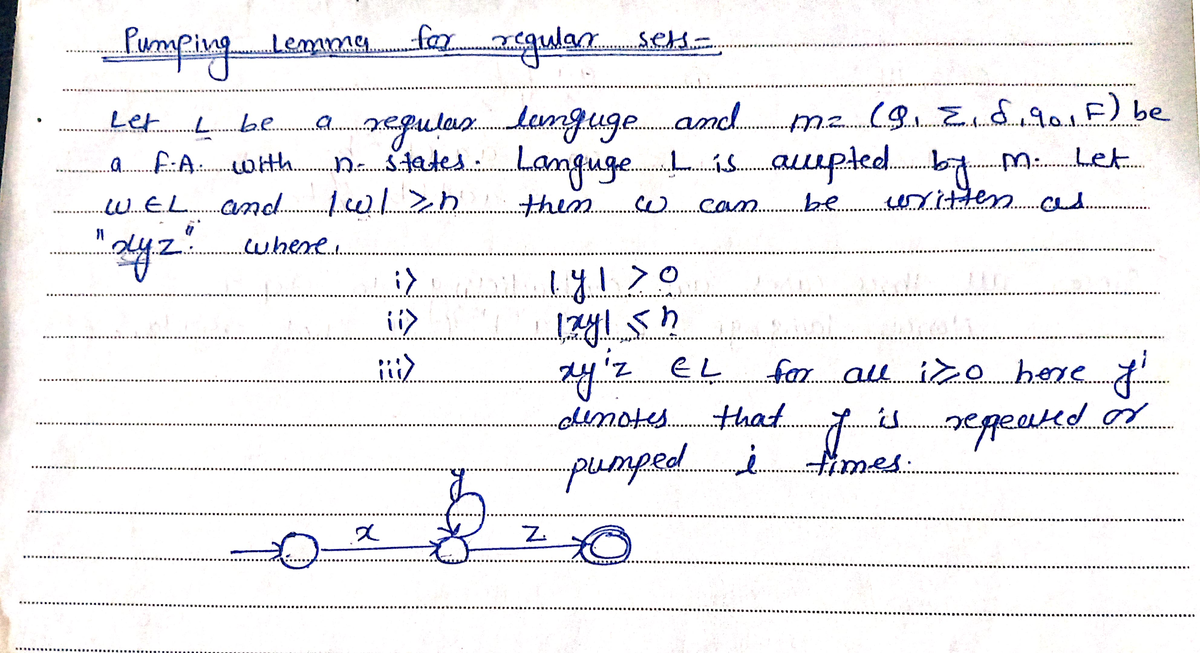 Pumping Lemma for regular sets-
Let L be a regular languge and m= (Q, Σ, δ, q0, F) be
a F.A. with n- states. Languge L is accepted by m. Let
w ∈ L and |w| ≥ n then w can be written as
"xyz" where,
i> |y| > 0
ii> |xy| ≤ n
iii> xyⁱz ∈ L for all i≥0 here yⁱ
denotes that y is reppeated or
pumped i times.
y
x z